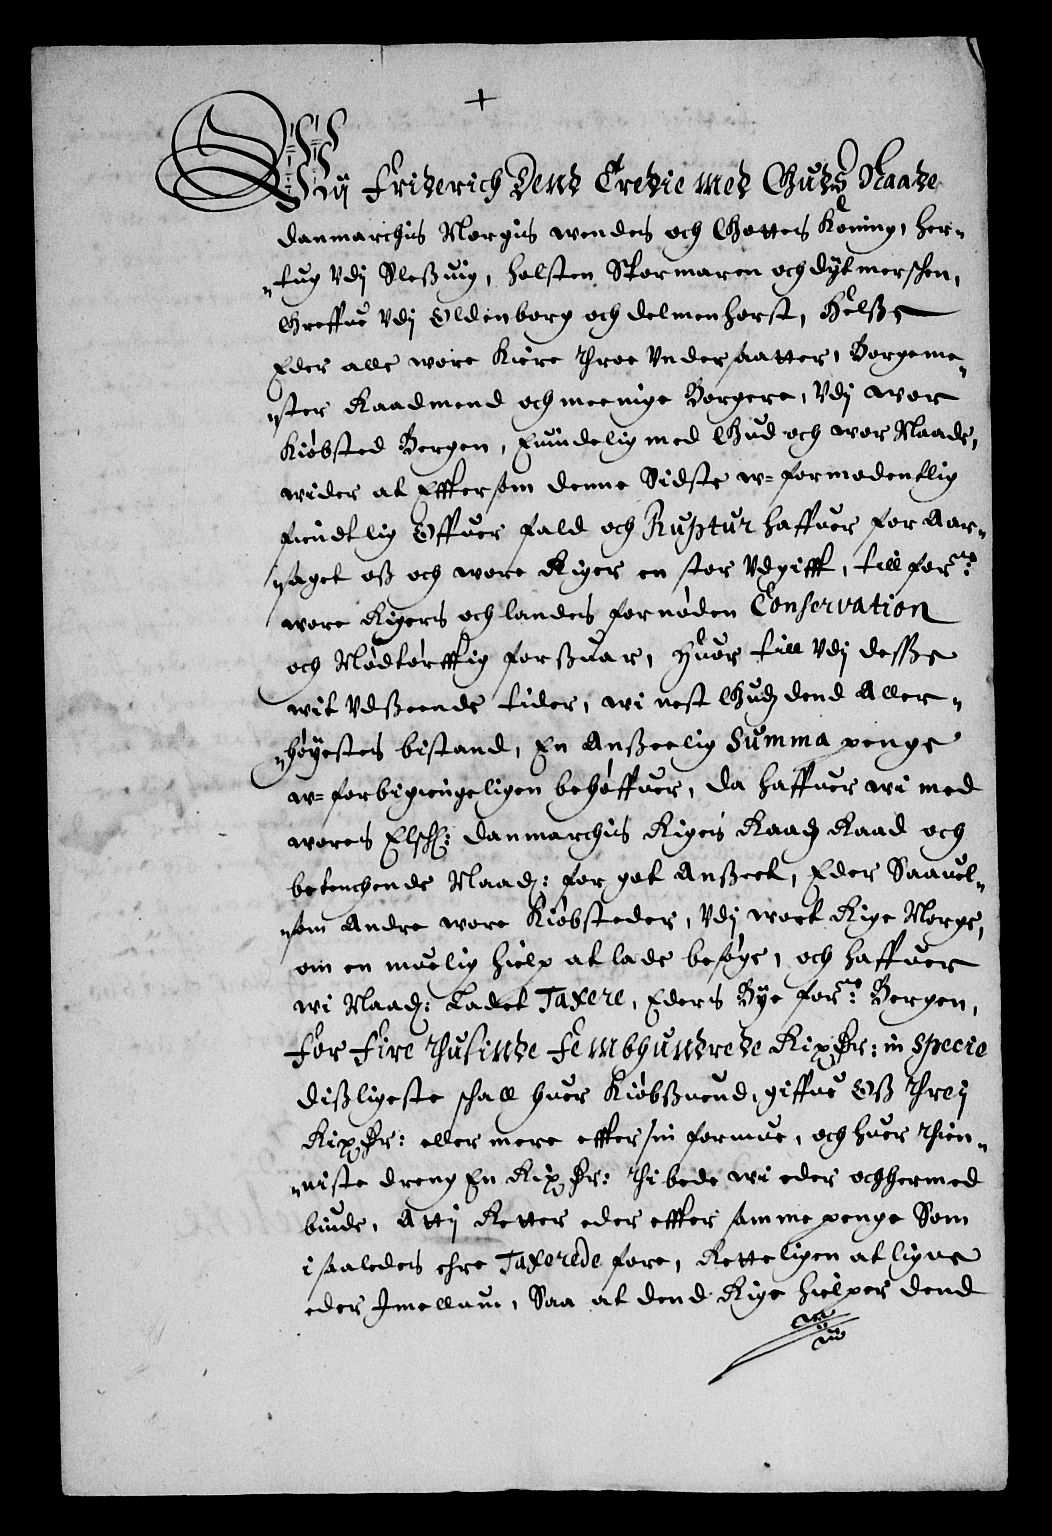 +
Wij Friderich Dend Tredie med Guds Naade
danmarchis Norgis wendes och Gottes Koning, her-
-tug Vdj Sleßuig, holsten Stormaren och dytmerschen,
Greffue Vdj Oldenborg och delmenhorst, Helße
Eder alle wore Kiere throe Vndersaatter, Borgeme-
-ster Raadmend och meenige Borgere, Vdj wor
Kiøbsted Bergen, Euindelig med Gud och wor Naade,
wider at Effter som denne Sidste w=formodentlig
fiendtlig Offuer fald och Ruptur haffuer foraar-
-saget oß och wore Riger en stor Vdgifft, till forne:
wore Rigers och landes fornøden Conservation
och Nødtørfftig forßuar, Huor till Vdj desße
wit Vdßeende tider, wi nest Gudz dend Aller-
-høyestes bistand, En Anßeelig Summa penge
w=forbigiengeligen behøffuer, da haffuer wi med
wores Elsch: danmarchis Rigeis Raadz Raad och
betenchende Naad: for got Anßeet, Eder Saauel-
-som Andre wore Kiøbsteder, Vdj wort Rige Norge,
om en muelig hielp at lade besøge, och haffuer
wi Naad: Ladet Taxere, Eders Bye forne: Bergen,
for fire thusinde fembhundrede Rixdr: in specie
dißligeste schall huer Kiøbßuend, giffue Oß threj
Rixdr: eller mere effter sin formue, och huer thien-
-niste dreng En Rixdr: thi bede wi eder och hermed
biude, Attj Retter eder effter samme penge Som
i saaledes ehre Taxerede fore, Retteligen at ligne
eder Imellum, Saa at dend Rige hielper dend